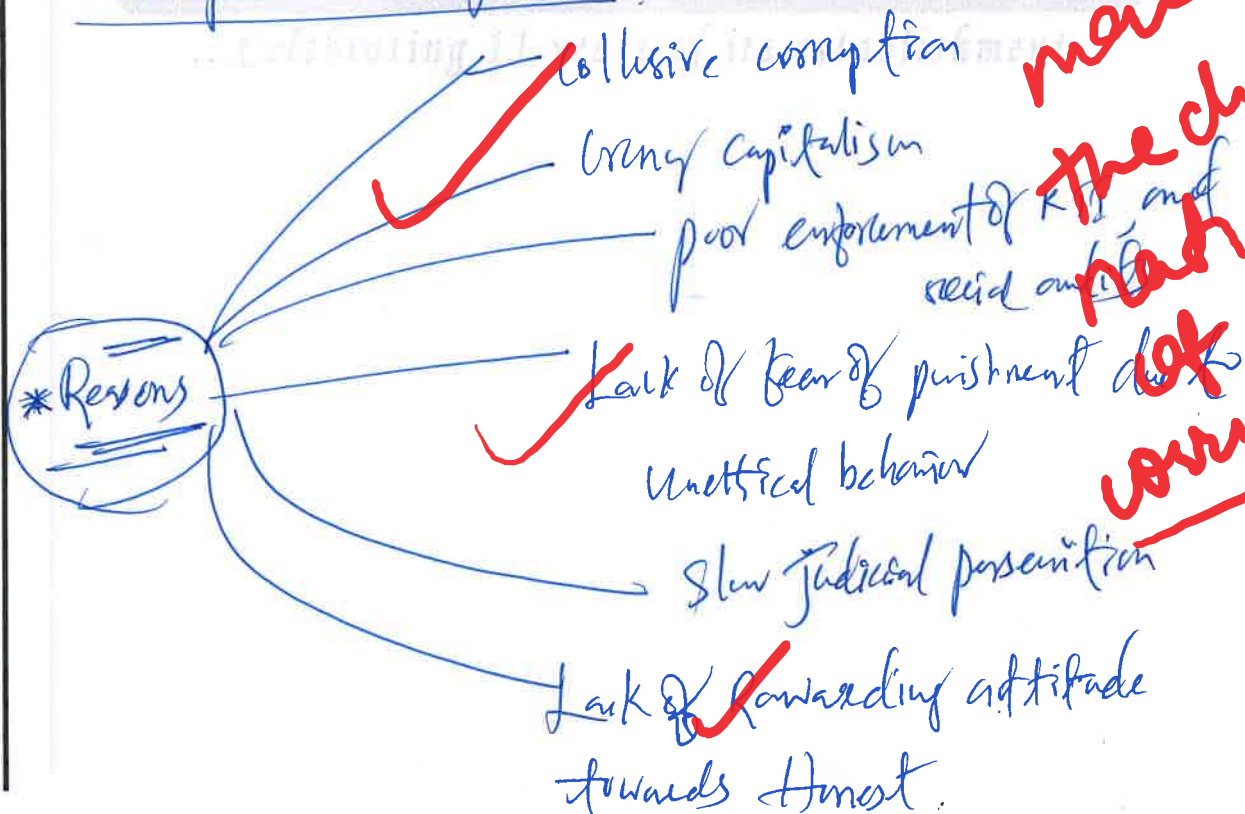 Collusive corruption
Crony Capitalism
poor enforcement of RTI and
social audits
* Reasons
Lack of fear of punishment due to
Unethical behavior
Slow Judicial
Lack of Rewarding attitude
towards Honest.
the
of